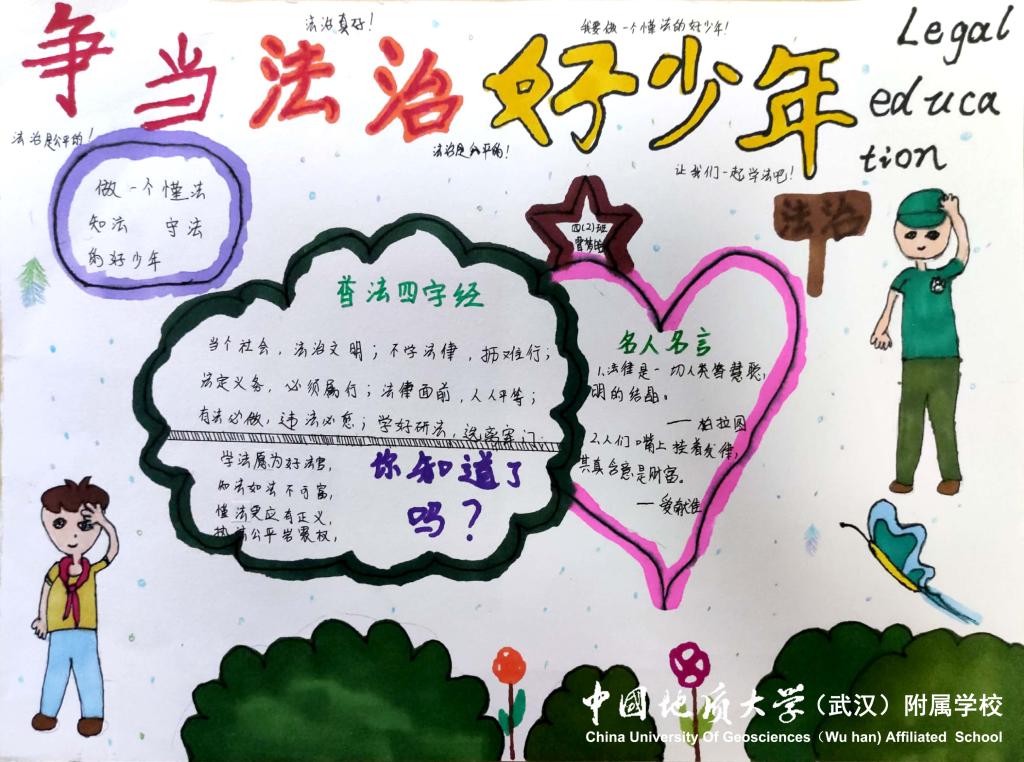 法治真好！
我要做一个懂法的好少年！
争当法治好少年
Legal
educa
tion
法治是公平的！
法治是公平的！
让我们一起学法吧！
做一个懂法
知法 守法
的好少年
四(2)班
法治
普法四字经
当个社会，法治文明；不学法律，
法定义务，必须属行；法律面前，人人平等；
有法必做，违法必惩；学好研法，远离
学法愿为好法官，
懂法更应有正义，
你知道了
吗？
名人名言
1.法律是一切人类智慧聪，
明的结晶。
——柏拉图
2.人们嘴上挂着法律，
其真含意是财富。
——爱献准
中国地质大学（武汉）附属学校
China University Of Geosciences（Wu han) Affiliated School